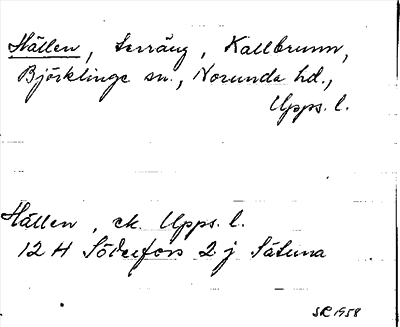 Hällen, Lerräng, Kallbrunn,
Björklinge sn., Norunda hd.,
Upps. l.
Hällen, ek. Upps. l.
12 H Söderfors 2 j Sätuna
SR 1958